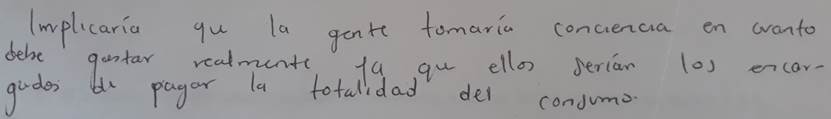 Implicaría qu la gente tomaría conciencia en cuanto
debe gastar realmente ya qu ellos serían los encar-
gados de pagar la totalidad del consumo.